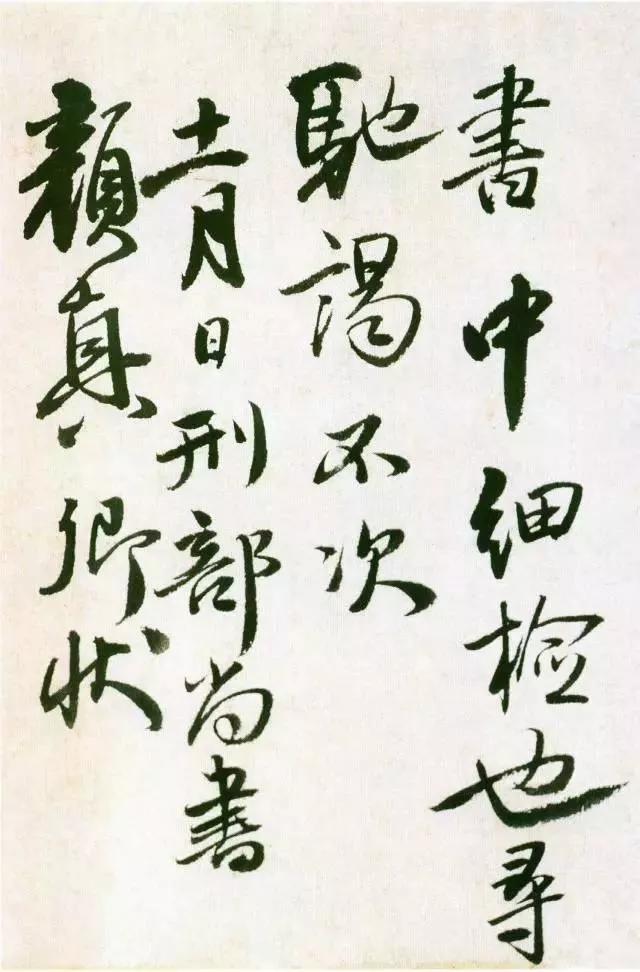 書中細檢也尋
馳謁不次
十一月日刑部尚書
顏真卿狀